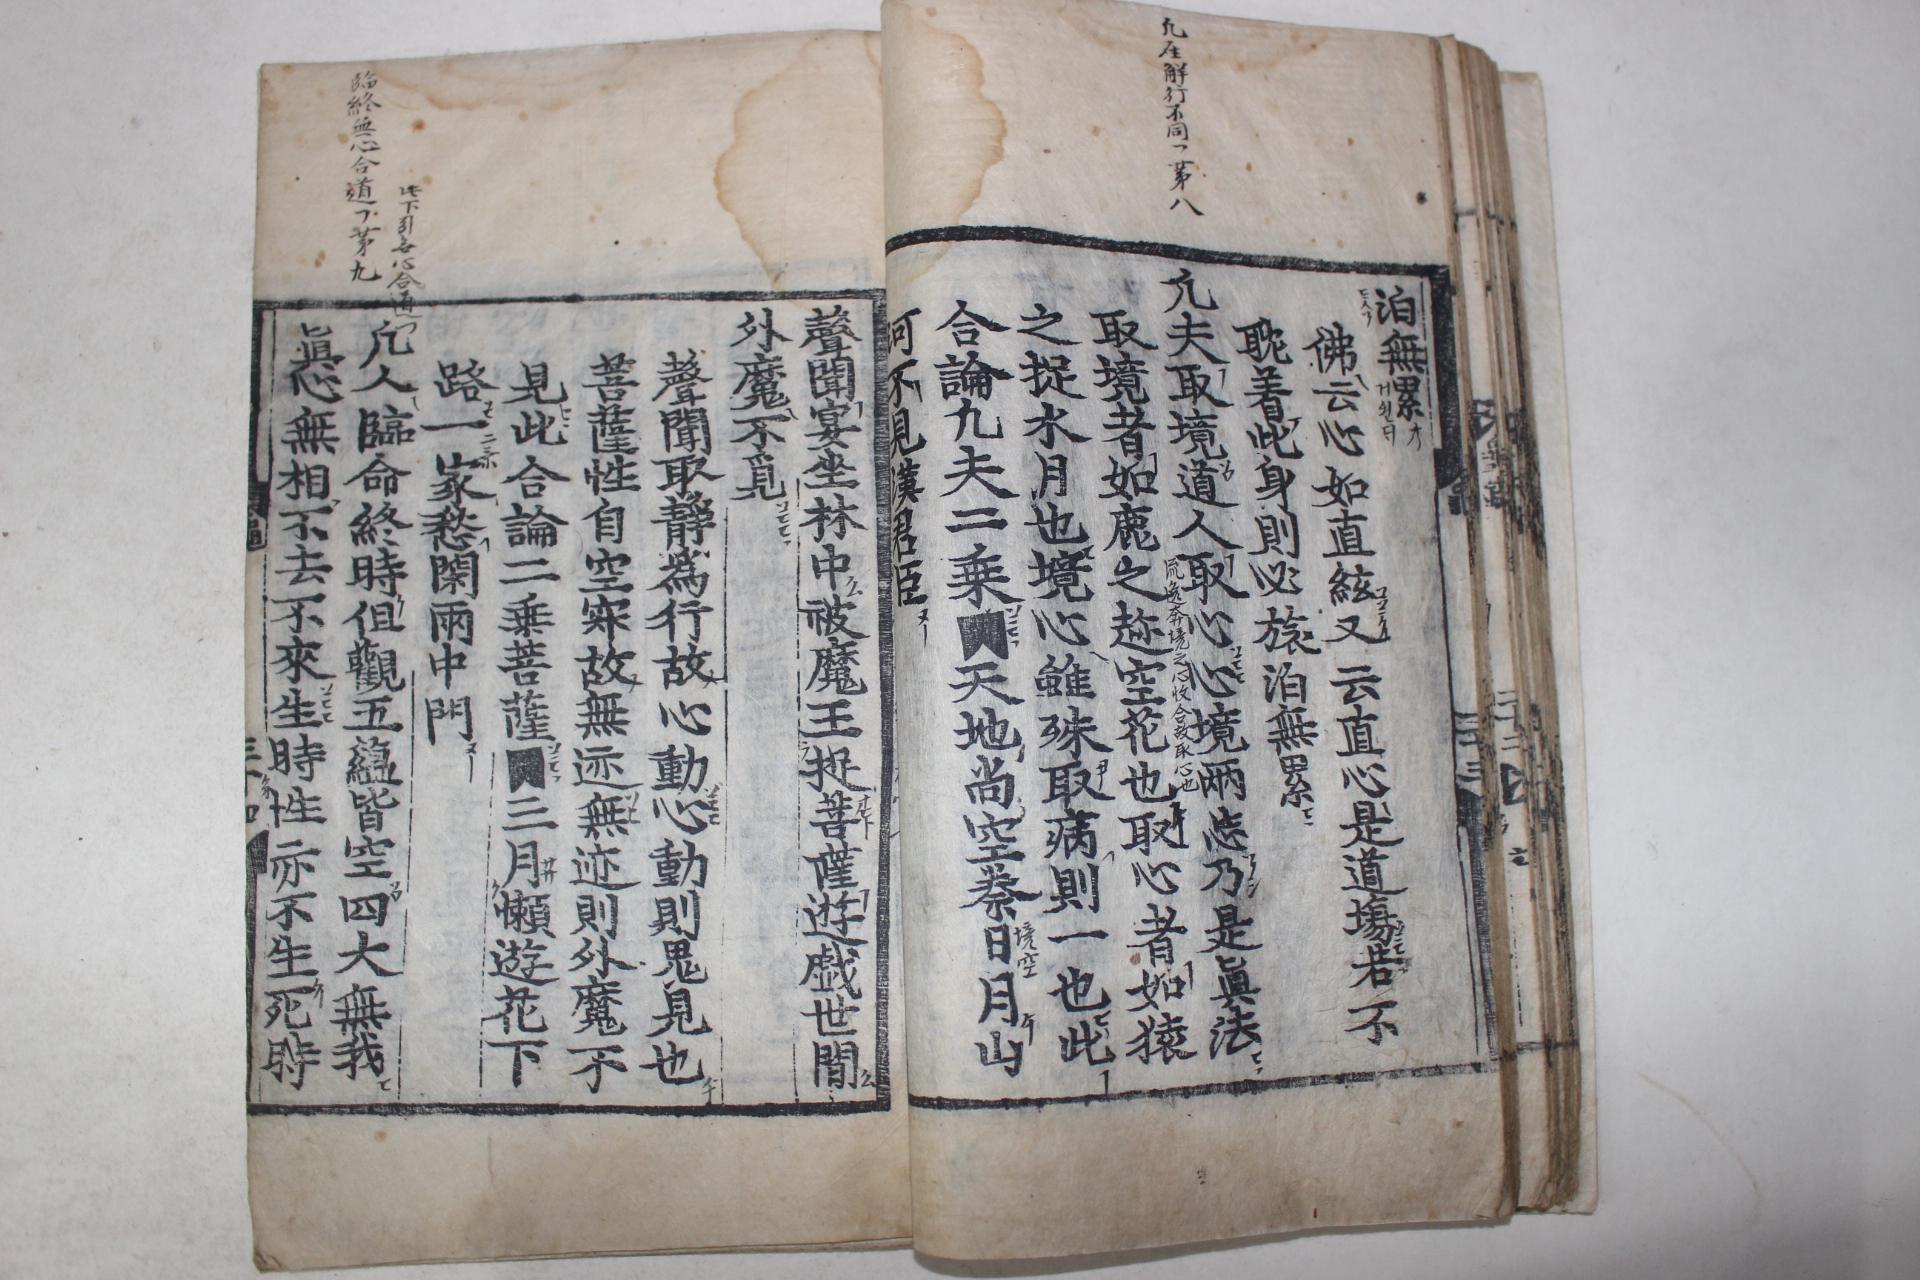 凡聖解行不同 第八
泊無累
佛云心如直絃又云直心是道場若不
耽着此身則必旅泊無累
凢夫取境道人取心心境兩忘乃是眞法
取境者如鹿之趂空花也取心者如猿
流逸奔境之心收合故取心也
之捉水月也境心雖殊取病則一也此
合論凢夫二乗
天地尚空秦日月山
境空
河不見漢君臣
聲聞宴坐林中被魔王捉菩薩遊戱世間
外魔不覓
聲聞取靜為行故心動心動則鬼見也
菩薩性自空寂故無迹無迹則外魔不
見此合論二乗菩薩
三月懶遊花下
路一家愁閉雨中門
此下引無心合道
臨終無心合道 第九
凡人臨命終時但觀五蘊皆空四大無我
眞心無相不去不來生時性亦不生死時